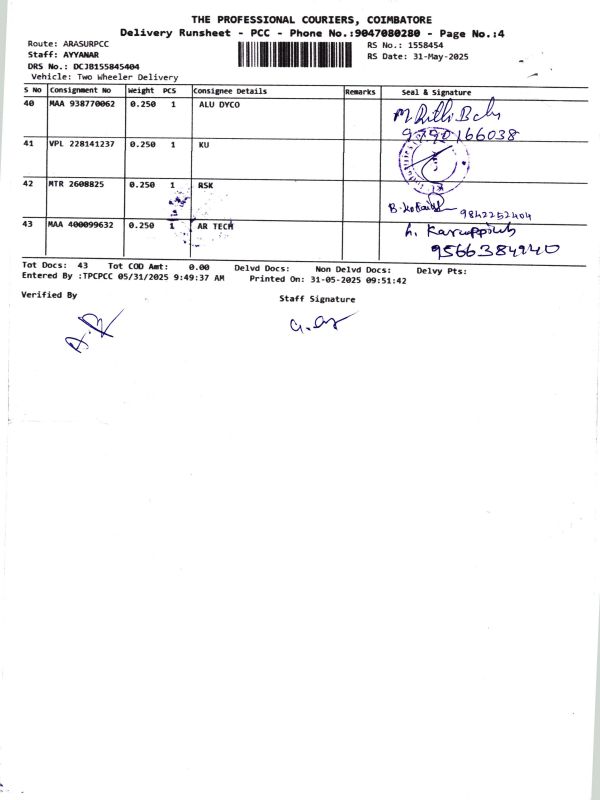 THE PROFESSIONAL COURIERS, COIMBATORE
Delivery Runsheet - PCC - Phone No.:9047080280 - Page No.:4
Route: ARASURPCC
RS No.: 1558454
Staff: AYYANAR
RS Date: 31-May-2025
DRS No.: DCJB155845404
Vehicle: Two Wheeler Delivery
S No Consignment No Weight PCS Consignee Details Remarks Seal & Signature
40 MAA 938770062 0.250 1 ALU DYCO
9790166038
41 VPL 228141237 0.250 1 KU
42 MTR 2608825 0.250 1 RSK
9842252404
43 MAA 400099632 0.250 1 AR TECH
9566384940
Tot Docs: 43 Tot COD Amt: 0.00 Delvd Docs: Non Delvd Docs: Delvy Pts:
Entered By :TPCPCC 05/31/2025 9:49:37 AM Printed On: 31-05-2025 09:51:42
Verified By
Staff Signature